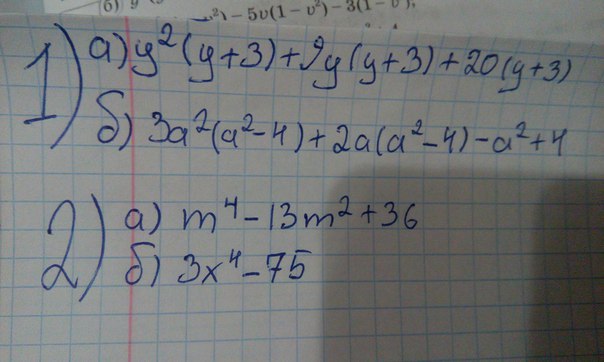 б) у ²) – 5v(1 – v²) – 3(1 – v
1) а) y²(y+3)+9y(y+3)+20(y+3)
б) 3a²(a²-4)+2a(a²-4)-a²+4
2) а) m⁴-13m²+36
б) 3x⁴-75